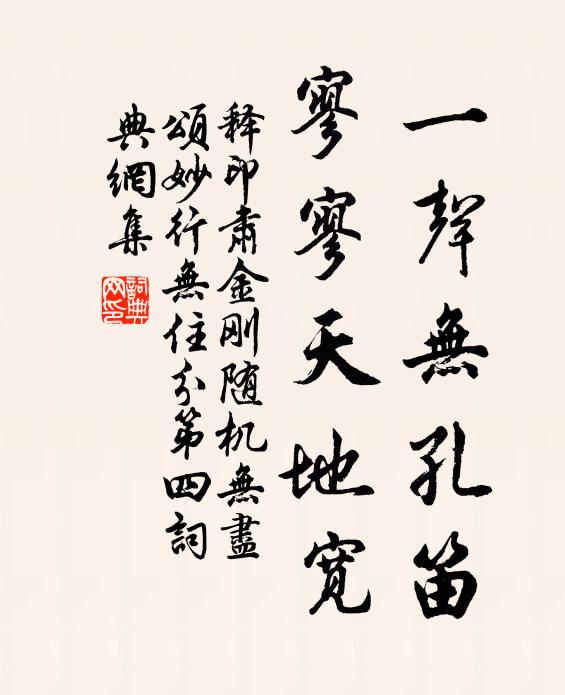 一聲無孔笛
寥寥天地寬
释印肅金刚随机無盡
頌妙行無住分第四詞
典網集
詞典
网印